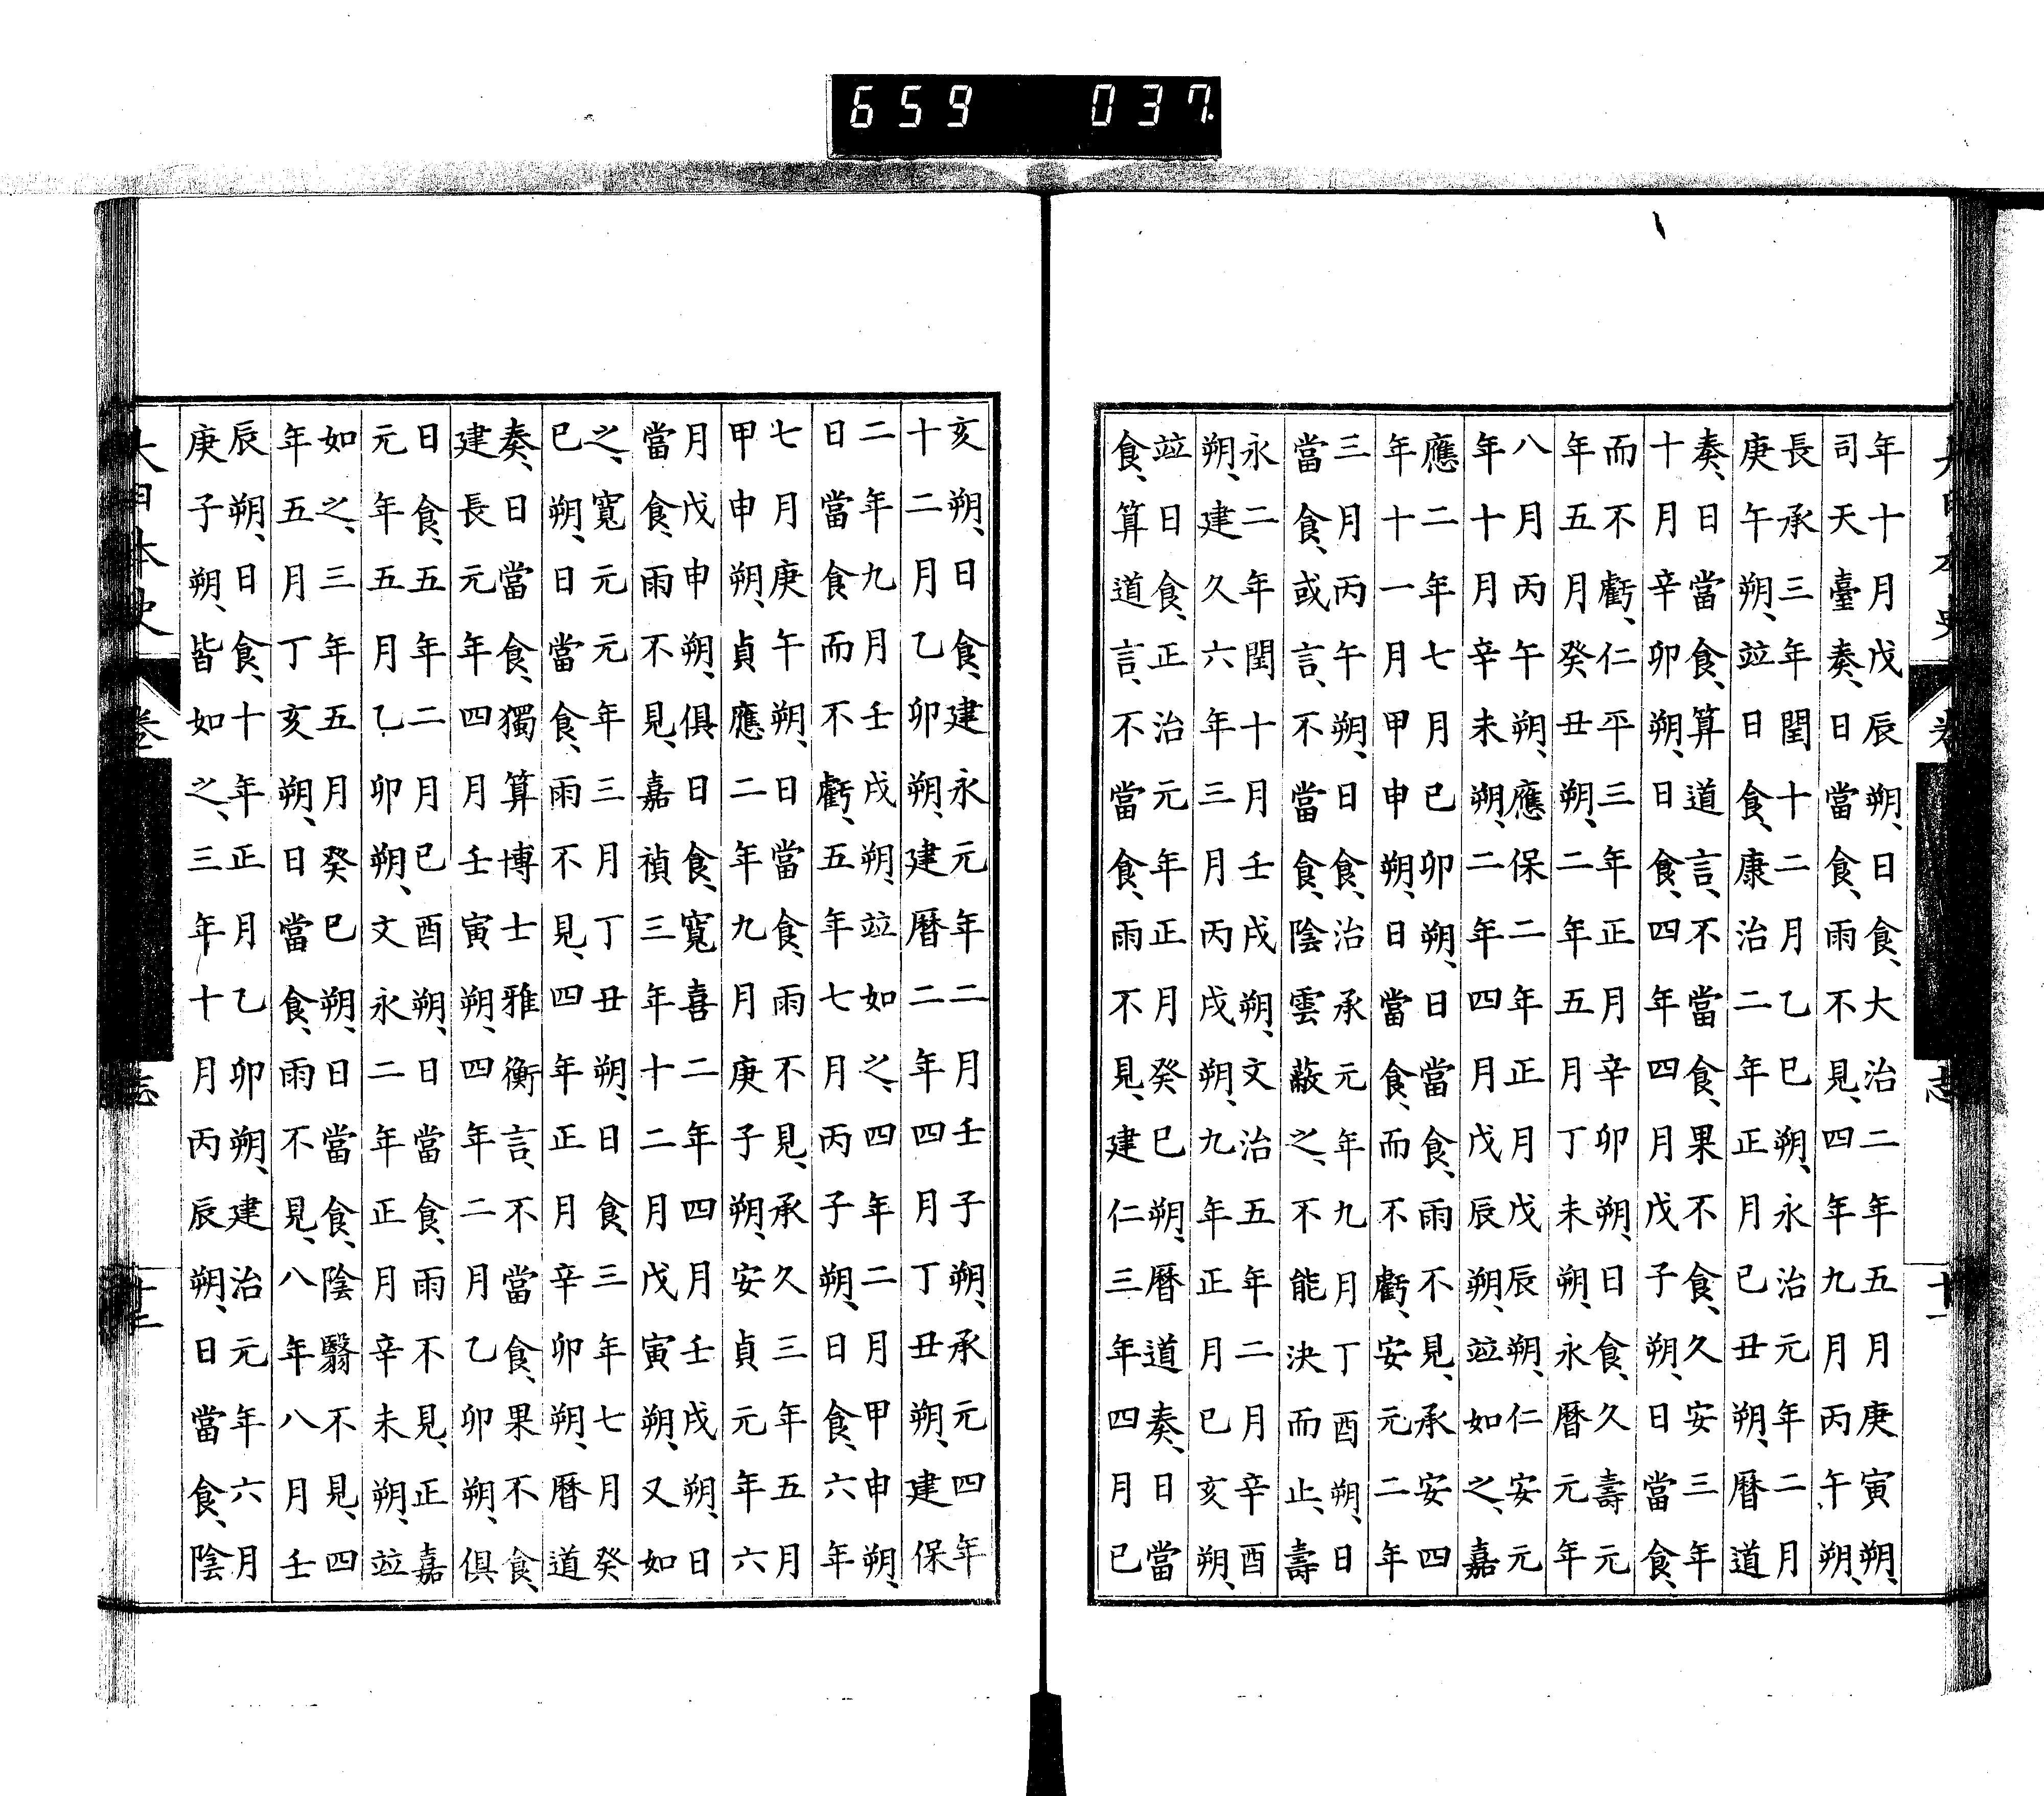 659 037
大日本史 卷 志 十一
年十月戊辰朔、日食、大治二年五月庚寅朔、
司天臺奏、日當食、雨不見、四年九月丙午朔、
長承三年閏十二月乙巳朔、永治元年二月
庚午朔、竝日食、康治二年正月己丑朔、暦道
奏、日當食、算道言、不當食、果不食、久安三年
十月辛卯朔、日食、四年四月戊子朔、日當食、
而不虧、仁平三年正月辛卯朔、日食、久壽元
年五月癸丑朔、二年五月丁未朔、永暦元年
八月丙午朔、應保二年正月戊辰朔、仁安元
年十月辛未朔、二年四月戊辰朔、竝如之、嘉
應二年七月己卯朔、日當食、雨不見、承安四
年十一月甲申朔、日當食、而不虧、安元二年
三月丙午朔、日食、治承元年九月丁酉朔、日
當食、或言、不當食、陰雲蔽之、不能決而止、壽
永二年閏十月壬戌朔、文治五年二月辛酉
朔、建久六年三月丙戌朔、九年正月己亥朔、
竝日食、正治元年正月癸巳朔、暦道奏、日當
食、算道言、不當食、雨不見、建仁三年四月己
亥朔、日食、建永元年二月壬子朔、承元四年
十二月乙卯朔、建暦二年四月丁丑朔、建保
二年九月壬戌朔、竝如之、四年二月甲申朔、
日當食而不虧、五年七月丙子朔、日食、六年
七月庚午朔、日當食、雨不見、承久三年五月
甲申朔、貞應二年九月庚子朔、安貞元年六
月戊申朔、俱日食、寬喜二年四月壬戌朔、日
當食、雨不見、嘉禎三年十二月戊寅朔、又如
之、寬元元年三月丁丑朔、日食、三年七月癸
巳朔、日當食、雨不見、四年正月辛卯朔、暦道
奏、日當食、獨算博士雅衡言、不當食、果不食、
建長元年四月壬寅朔、四年二月乙卯朔、俱
日食、五年二月己酉朔、日當食、雨不見、正嘉
元年五月乙卯朔、文永二年正月辛未朔、竝
如之、三年五月癸巳朔、日當食、陰翳不見、四
年五月丁亥朔、日當食、雨不見、八年八月壬
辰朔、日食、十年正月乙卯朔、建治元年六月
庚子朔、皆如之、三年十月丙辰朔、日當食、陰
大日本史 卷 志 十二